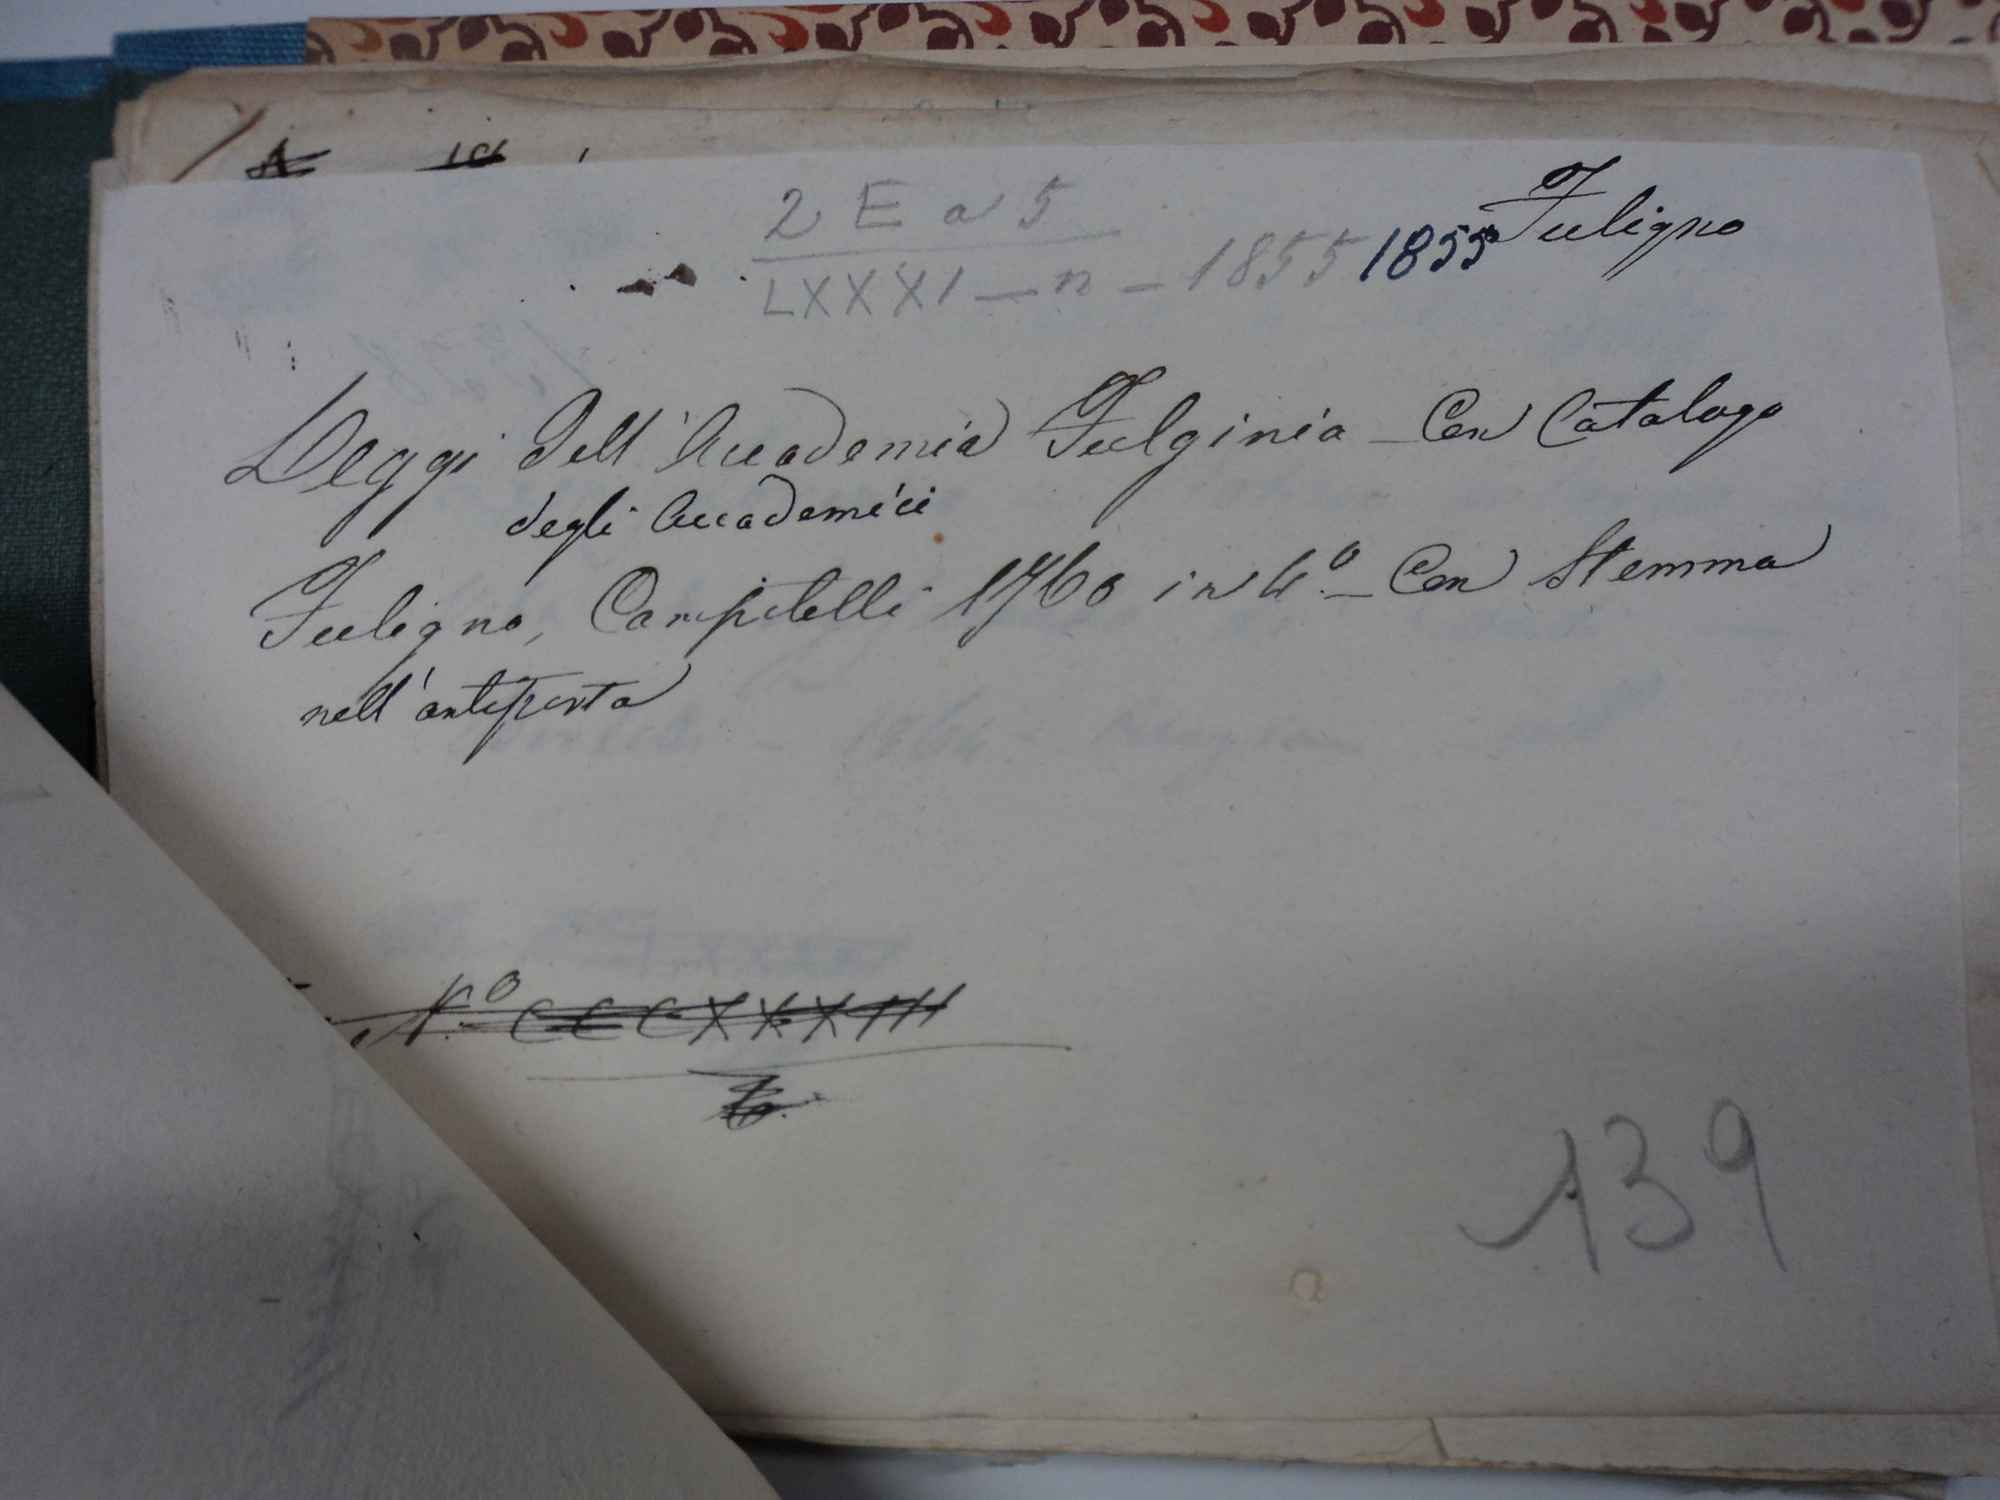 2 E a 5
LXXXI - n - 1855 1855 Fuligno
Leggi dell' Accademia Fulginia - Con Catalogo
degli Accademici
Fuligno, Campitelli 1760 in 4.º - Con Stemma
nell' antiporta
N.º CCCXXXIII
139